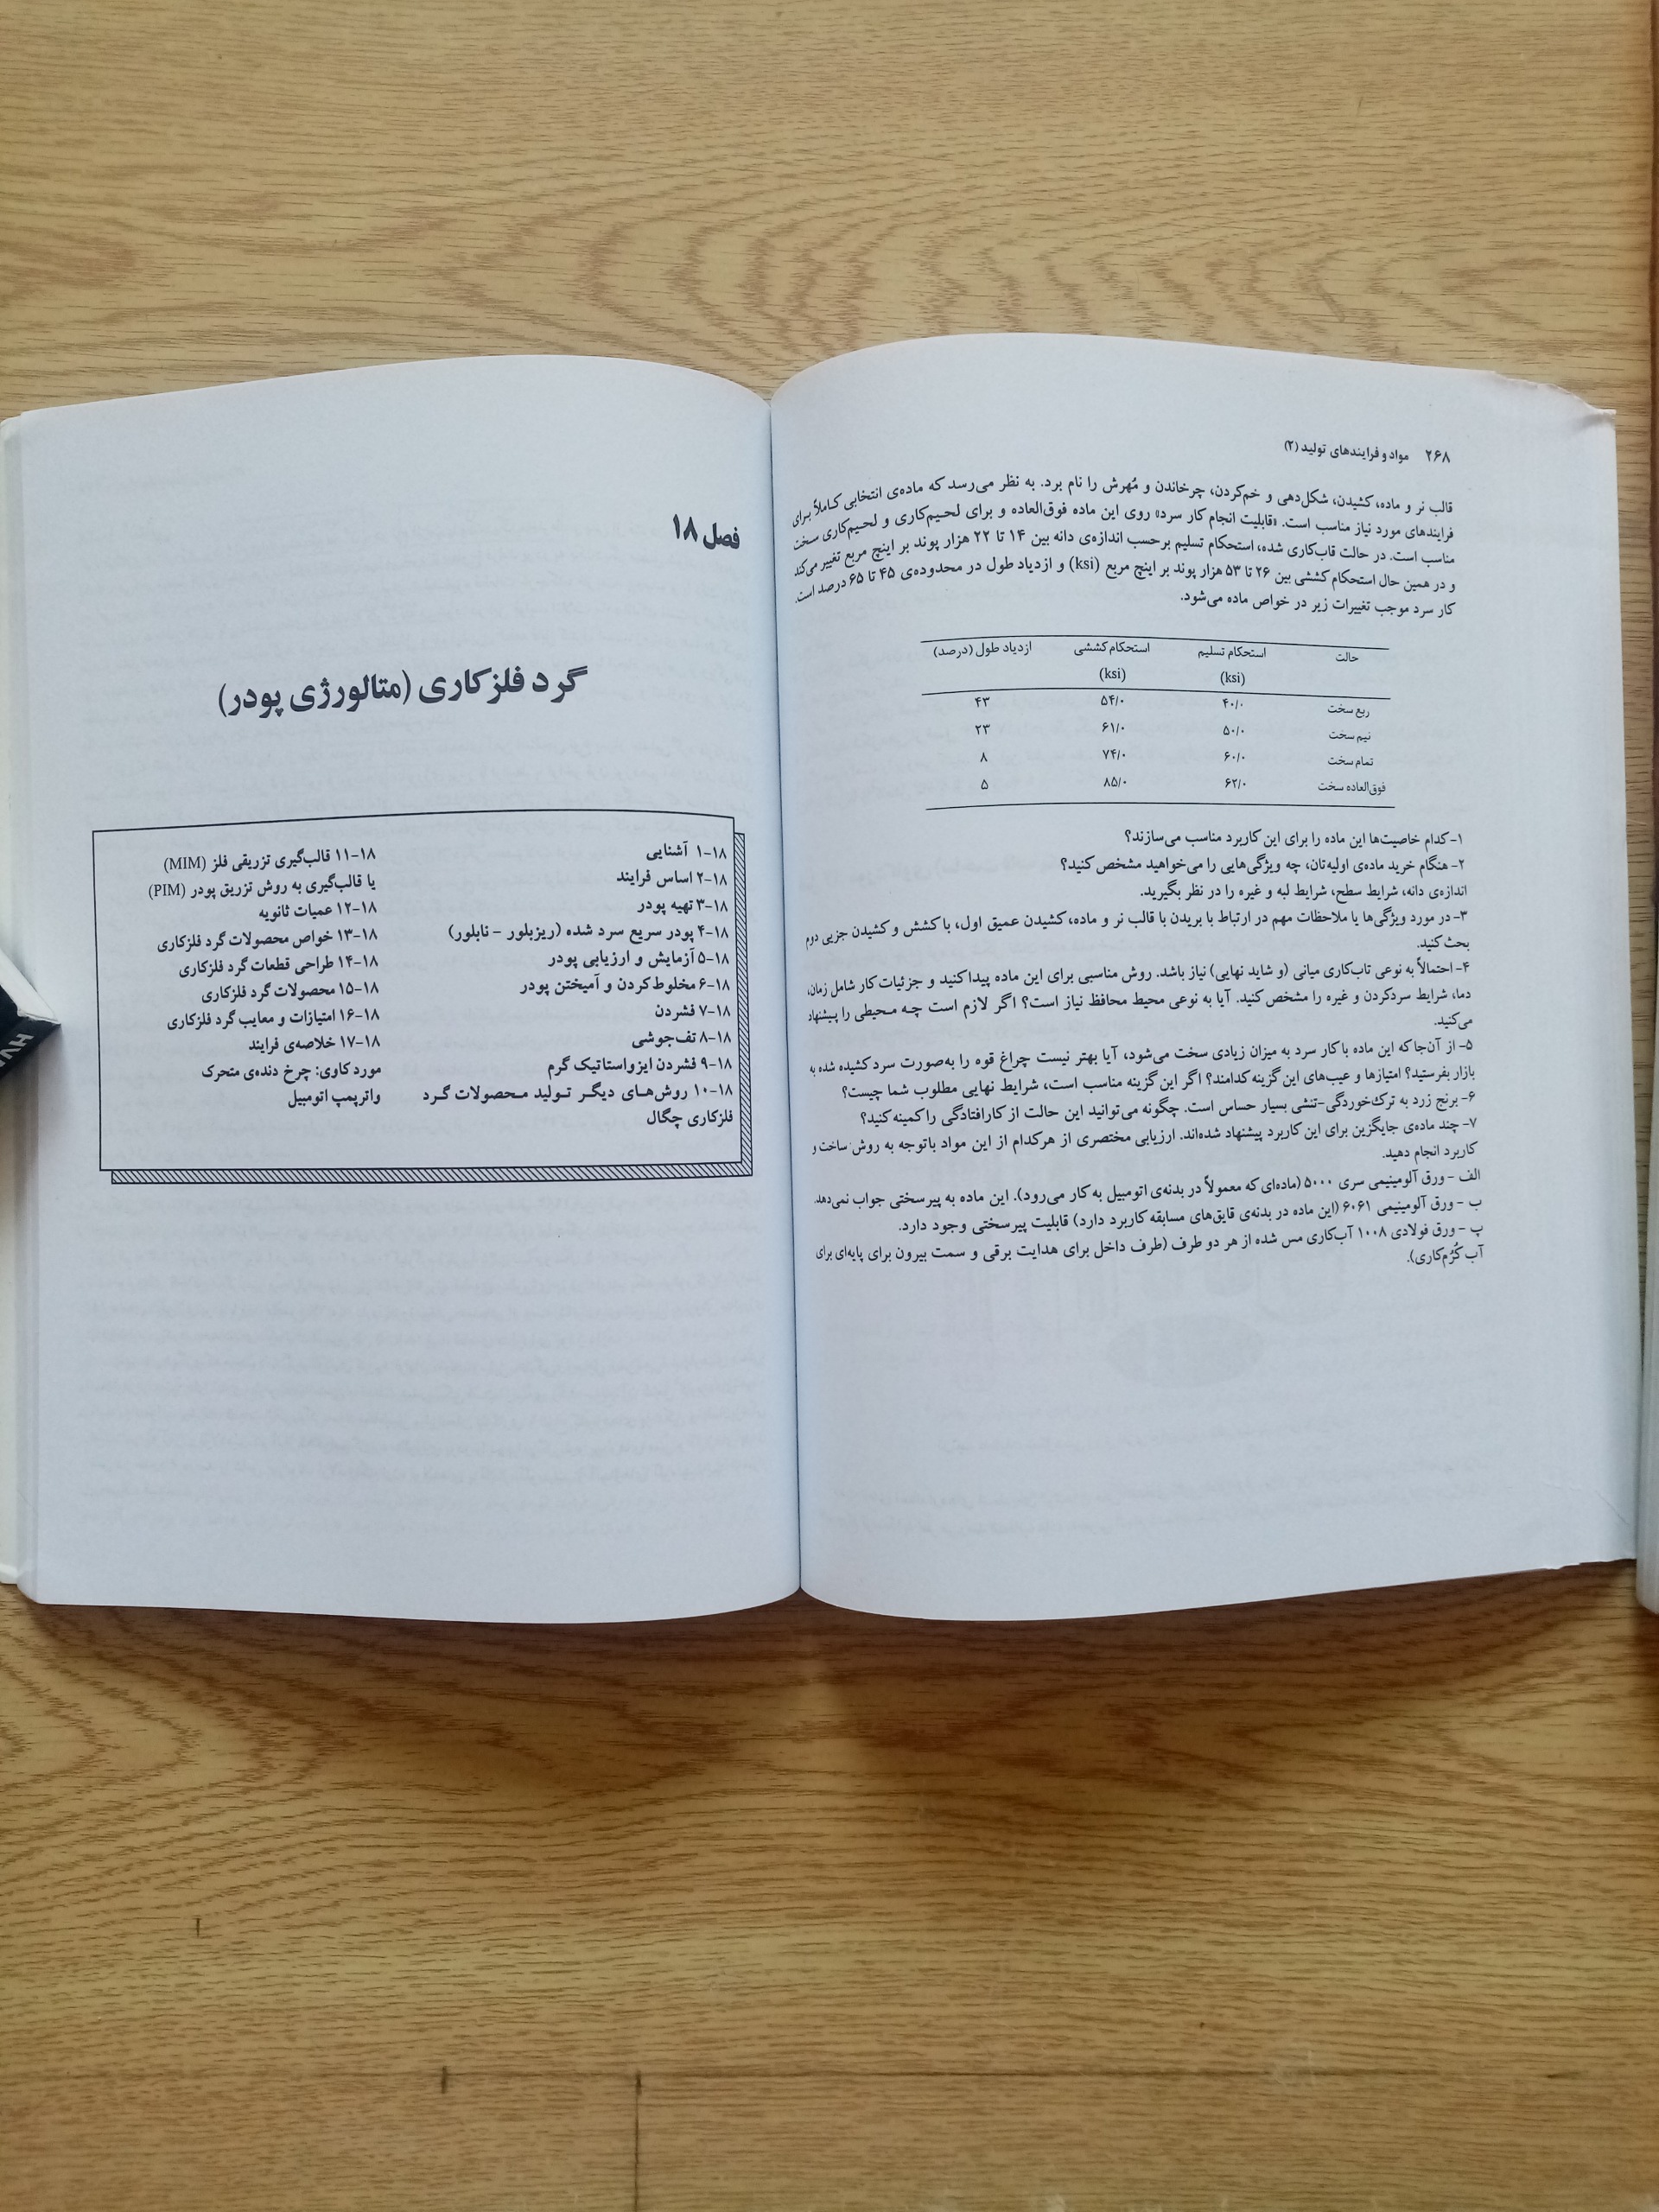 ۲۶۸ مواد و فرایندهای تولید (۲)
قالب نر و ماده، کشیدن، شکل‌دهی و خم‌کردن، چرخاندن و مُهرش را نام برد. به نظر می‌رسد که ماده‌ی انتخابی کاملاً برای
فرایندهای مورد نیاز مناسب است. «قابلیت انجام کار سرد» روی این ماده فوق‌العاده و برای لحیم‌کاری و لحیم‌کاری سخت
مناسب است. در حالت قاب‌کاری شده، استحکام تسلیم برحسب اندازه‌ی دانه بین ۱۴ تا ۲۲ هزار پوند بر اینچ مربع تغییر می‌کند
و در همین حال استحکام کششی بین ۲۶ تا ۵۳ هزار پوند بر اینچ مربع (ksi) و ازدیاد طول در محدوده‌ی ۴۵ تا ۶۵ درصد است.
کار سرد موجب تغییرات زیر در خواص ماده می‌شود.
حالت استحکام تسلیم استحکام کششی ازدیاد طول (درصد)
(ksi) (ksi)
ربع سخت ۴۰/۰ ۵۴/۰ ۴۳
نیم سخت ۵۰/۰ ۶۱/۰ ۲۳
تمام سخت ۶۰/۰ ۷۴/۰ ۸
فوق‌العاده سخت ۶۲/۰ ۸۵/۰ ۵
۱- کدام خاصیت‌ها این ماده را برای این کاربرد مناسب می‌سازند؟
۲- هنگام خرید ماده‌ی اولیه‌تان، چه ویژگی‌هایی را می‌خواهید مشخص کنید؟
اندازه‌ی دانه، شرایط سطح، شرایط لبه و غیره را در نظر بگیرید.
۳- در مورد ویژگی‌ها یا ملاحظات مهم در ارتباط با بریدن با قالب نر و ماده، کشیدن عمیق اول، با کشش و کشیدن جزیی دوم
بحث کنید.
۴- احتمالاً به نوعی تاب‌کاری میانی (و شاید نهایی) نیاز باشد. روش مناسبی برای این ماده پیدا کنید و جزئیات کار شامل زمان،
دما، شرایط سردکردن و غیره را مشخص کنید. آیا به نوعی محیط محافظ نیاز است؟ اگر لازم است چه محیطی را پیشنهاد
می‌کنید.
۵- از آن‌جا که این ماده با کار سرد به میزان زیادی سخت می‌شود، آیا بهتر نیست چراغ قوه را به‌صورت سرد کشیده شده به
بازار بفرستید؟ امتیازها و عیب‌های این گزینه کدامند؟ اگر این گزینه مناسب است، شرایط نهایی مطلوب شما چیست؟
۶- برنج زرد به ترک‌خوردگی-تنشی بسیار حساس است. چگونه می‌توانید این حالت از کارافتادگی را کمینه کنید؟
۷- چند ماده‌ی جایگزین برای این کاربرد پیشنهاد شده‌اند. ارزیابی مختصری از هرکدام از این مواد باتوجه به روش ساخت و
کاربرد انجام دهید.
الف - ورق آلومینیمی سری ۵۰۰۰ (ماده‌ای که معمولاً در بدنه‌ی اتومبیل به کار می‌رود). این ماده به پیرسختی جواب نمی‌دهد.
ب - ورق آلومینیمی ۶۰۶۱ (این ماده در بدنه‌ی قایق‌های مسابقه کاربرد دارد) قابلیت پیرسختی وجود دارد.
پ - ورق فولادی ۱۰۰۸ آب‌کاری مس شده از هر دو طرف (طرف داخل برای هدایت برقی و سمت بیرون برای پایه‌ای برای
آب کُرُم‌کاری).
فصل ۱۸
گرد فلزکاری (متالورژی پودر)
۱۸-۱ آشنایی
۱۸-۲ اساس فرایند
۱۸-۳ تهیه پودر
۱۸-۴ پودر سریع سرد شده (ریزبلور - نابلور)
۱۸-۵ آزمایش و ارزیابی پودر
۱۸-۶ مخلوط کردن و آمیختن پودر
۱۸-۷ فشردن
۱۸-۸ تف‌جوشی
۱۸-۹ فشردن ایزواستاتیک گرم
۱۸-۱۰ روش‌های دیگر تولید محصولات گرد
فلزکاری چگال
۱۸-۱۱ قالب‌گیری تزریقی فلز (MIM)
یا قالب‌گیری به روش تزریق پودر (PIM)
۱۸-۱۲ عمیات ثانویه
۱۸-۱۳ خواص محصولات گرد فلزکاری
۱۸-۱۴ طراحی قطعات گرد فلزکاری
۱۸-۱۵ محصولات گرد فلزکاری
۱۸-۱۶ امتیازات و معایب گرد فلزکاری
۱۸-۱۷ خلاصه‌ی فرایند
مورد کاوی: چرخ دنده‌ی متحرک
واترپمپ اتومبیل